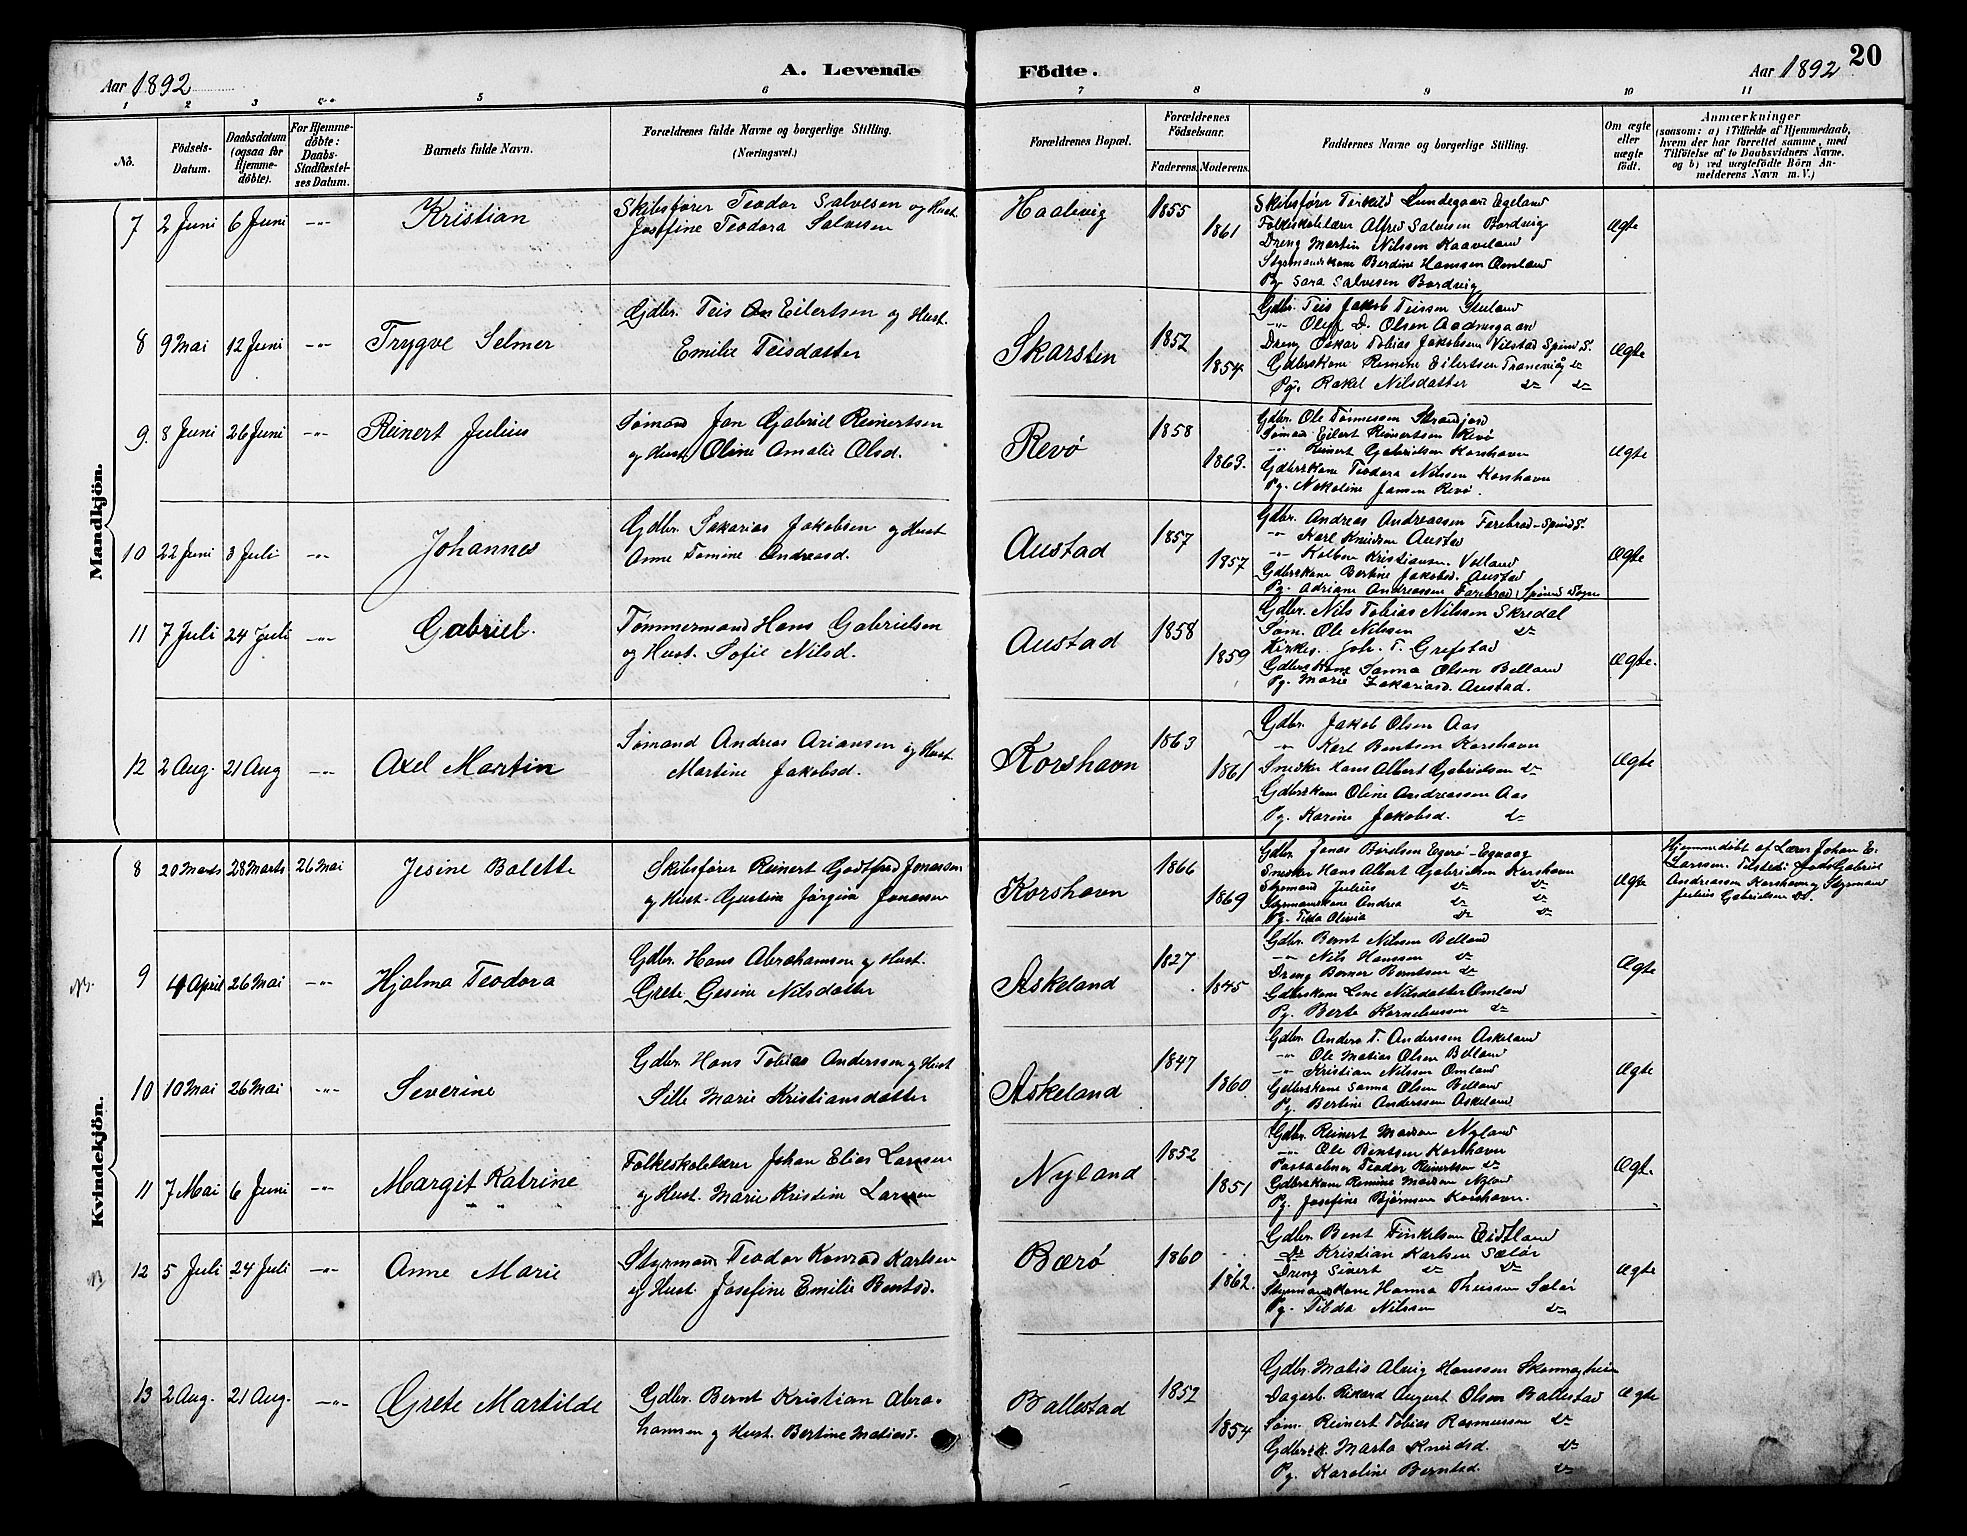 20
Aar 1892
A. Levende Födte.
Aar 1892
1 2 3 5 6 7 8 9 10 11
No.
Födsels-Datum.
Daabsdatum (ogsaa for Hjemme-döbte).
For Hjemme-döbte: Daabs-Stadfæstel-ses Datum.
Barnets fulde Navn.
Forældrenes fulde Navne og borgerlige Stilling.
(Næringsvei.)
Forældrenes Bopæl.
Forældrenes Födselsaar.
Faderens. Moderens.
Faddernes Navne og borgerlige Stilling.
Om ægte eller uægte födt.
Anmærkninger
(saasom: a) i Tilfælde af Hjemmedaab,
hvem der har forrettet samme, med
Tilföielse af to Daabsvidners Navne,
og b) ved uægtefödte Börn An-
melderens Navn m. V.)
Mandkjön.
7 2 Juni 6 Juni -"- Kristian
Skibsfører Teodor Salvesen og Hust.
Josefine Teodora Salvesen
Haalivig 1855 1861
Skibsfører Terkild Lundegaard Egeland
Folkeskolelærer Alfred Salvesen Bordvig
Dreng Martin Nilssen Kaaveland
Styrmandskone Berdine Hanssen Omland
Pg. Sara Salvesen Bordvig
Ægte
8 9 Mai 12 Juni -"- Trygve Selmer
Gdbr. Teis An Eilertsen og Hust.
Emilie Teisdatter
Skarstin 1852 1854
Gdbr. Teis Jakob Teissen
-"- Oluf D. Olsen Aadnesgaard
Dreng Oskar Tobias Jakobsen Vilstad Spind S.
Gdbrskone Remine Eilertsen Tranevåg do
Pg. Rakel Nilsdatter do do
Ægte
9. 8 Juni 26 Juni -"- Reinert Julius
Sømand Jan Gabriel Reinertsen
og Hust. Oline Amalie Olsd.
Revø 1858 1863.
Gdbr. Ole Tønnessen
Sømand Eilert Reinertsen Revø
-"- Reinert Gabrielsen Korshavn
Gdbrskone Teodora Nilssen Korshavn
Pg. Nekoline Jansen Revø.
Ægte
10 22 Juni 3 Juli -"- Johannes
Gdbr. Sakarias Jakobsen og Hust
Anne Tomine Andreasd.
Austad 1857 1857
Gdbr. Andreas Andreassen Farebrod - Spind S.
-"- Karl Knudsen Austad
-"- Kolben Kristiansen. Volland
Gdbrskone Bertine Jakobsd. Austad
Pg. Adriane Andreassen Farebrod, Spind Sogn
Ægte
11 7 Juli 24 Juli -"- Gabriel.
Tømmermand Hans Gabrielsen
og Hust. Sofie Nilsd.
Austad 1858 1859
Gdbr. Nils Tobias Nilssen Skredal
Søm. Ole Nilssen do
Kirkes. Joh. T. Grefstad
Gdbrskone Sanna Olsen Belland
Pg. Marie Zakariasd. Austad.
Ægte.
12 2 Aug. 21 Aug -"- Axel Martin
Sømand Andreas Ariansen og Hust
Martine Jakobsd.
Korshavn 1863 1861
Gdbr. Jakob Olsen Aas
-"- Karl Bentsen Korshavn
Snedker Hans Albert Gabrielsen do
Gdbrskone Oline Andreassen Aas
Pg. Karine Jakobsd. do
Ægte
Kvindekjön.
8 20 Marts 28 Marts 26 Mai Jesine Bolette
Skibsfører Reinert Godtfred Jonassen
og Hust. Gustine Jørgine Jonassen
Korshavn 1866 1869
Gdbr. Jonas Børelsen Egerø - Eqvaag
Snedker Hans Albert Gabrielsen Korshavn
Styrmand Julius do do
Styrmandskone Andrea do do
Pg. Tilda Olivia do do
Ægte
Hjemmedøbt af Lærer Johan E.
Larssen. Tilstede: Gabriel
Andreassen Korshavn og Styrmand
Julius Gabrielsen do.
9 4 April 26 Mai -"- Hjalma Teodora
Gdbr. Hans Abrahamsen og Hust.
Grete Gesine Nilsdatter
Askeland 1827 1845
Gdbr. Bernt Nilssen Belland
-"- Nils Hanssen do
Dreng Berner Berntsen do
Gdbrskone Lene Nilsdatter Omland
Pg. Berte Korneliussen do
Ægte
10 10 Mai 26 Mai -"- Severine
Gdbr. Hans Tobias Anderssen og Hust
Sille Marie Kristiansdatter
Askeland 1847 1860
Gdbr. Anders T. Anderssen Askeland
-"- Ole Matias Olsen Belland
-"- Kristian Nilssen Omland
Gdbrskone Sanna Olsen Belland
Pg. Bertine Anderssen Askeland
Ægte
11 7 Mai 6 Juni -"- Margit Katrine
Folkeskolelærer Johan Elias Larssen
og Hust. Marie Kristine Larssen
Nyland 1852 1851
Gdbr. Reinert Madsen Nyland
-"- Ole Bentsen Korshavn
Postaabner Teodor Reinertsen do
Gdbrskone Remine Madsen Nyland
Pg. Josefine Bjørnsen Korshavn.
Ægte.
12 5 Juli 24 Juli -"- Anne Marie
Styrmand Teodor Konrad Karlsen
og Hust. Josefine Emilie Bentsd.
Bærø 1860 1862.
Gdbr. Bent Tinkelsen Eidsland
Do Kristian Karlsen Sælør
Dreng Sivert do do
Styrmandskone Hanna Theissen Sælør
Pg. Tilda Nilssen do
Ægte
13 2 Aug. 21 Aug. -"- Grete Martilde
Gdbr. Bernt Kristian Abra-
hamsen og Hust. Bertine Matiasd.
Ballestad 1852 1854
Gdbr. Matis Alvig Hanssen
Dagarb. Rikard August Olsen Ballestad
Søm. Reinert Tobias Rasmussen do
Gdbrsk. Marta Knudsd. do
Pg. Karoline Berntsd. do
Ægte